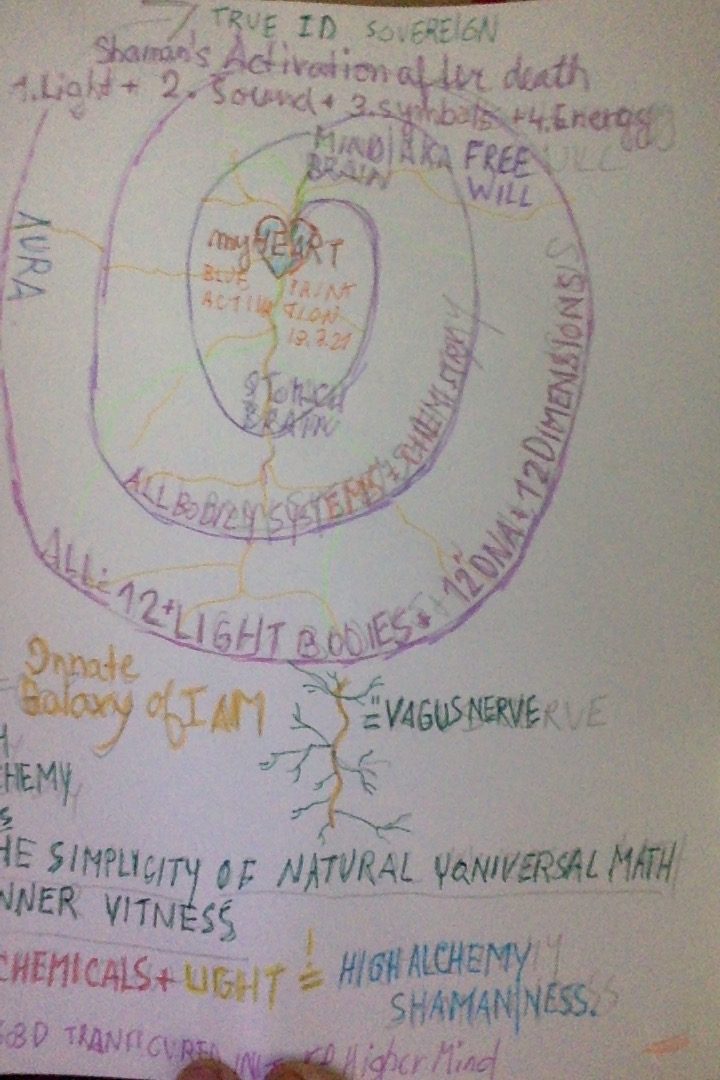 TRUE ID SOVEREIGN
Shaman's Activation after death
1. Light + 2. Sound + 3. symbols + 4. Energy
MIND/AKA FREE
BRAIN
WILL
AURA
my HEART
BLUE PRINT
ACTIVATION
STOMACH
BRAIN
ALL BODIEZY SYSTEMS + CHEMISTRY
ALL: 12+ LIGHT BODIES + 12 DNA + 12 DIMENSIONS
Innate
Galaxy of I AM
= VAGUS NERVE
HEMY
HE SIMPLICITY OF NATURAL YONIVERSAL MATH
NNER VITNESS
CHEMICALS + LIGHT = HIGH ALCHEMY
SHAMANINESS.
Higher Mind